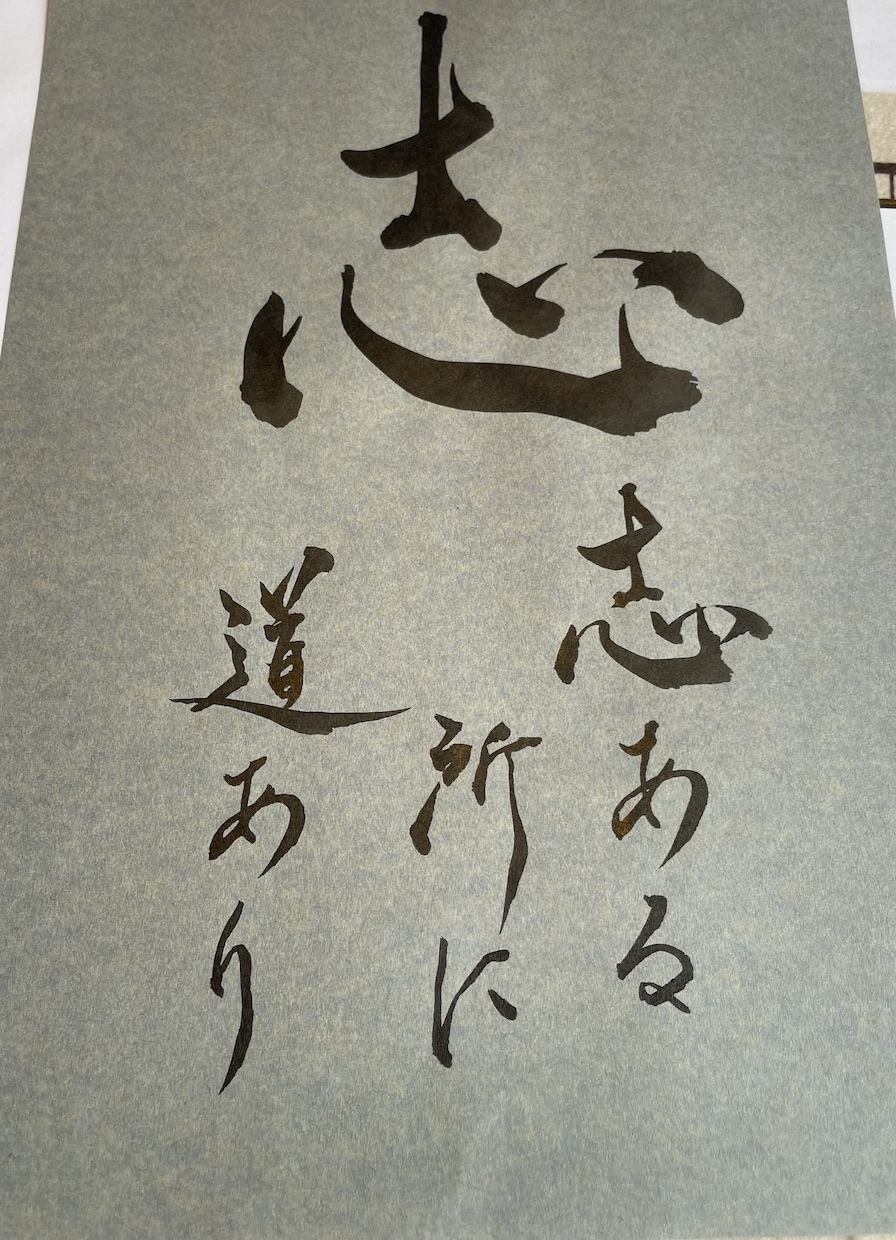 志
志ある
所に
道あり